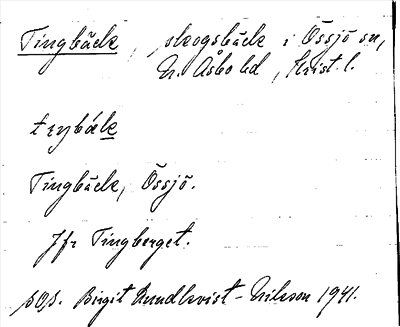 Tingbäck, skogsbäck i Össjö sn,
N. Åsbo hd, Krist. l.
Tingbäck, Össjö.
Jfr Tingberget.
Birgit Rundkvist-Nilsson 1941.